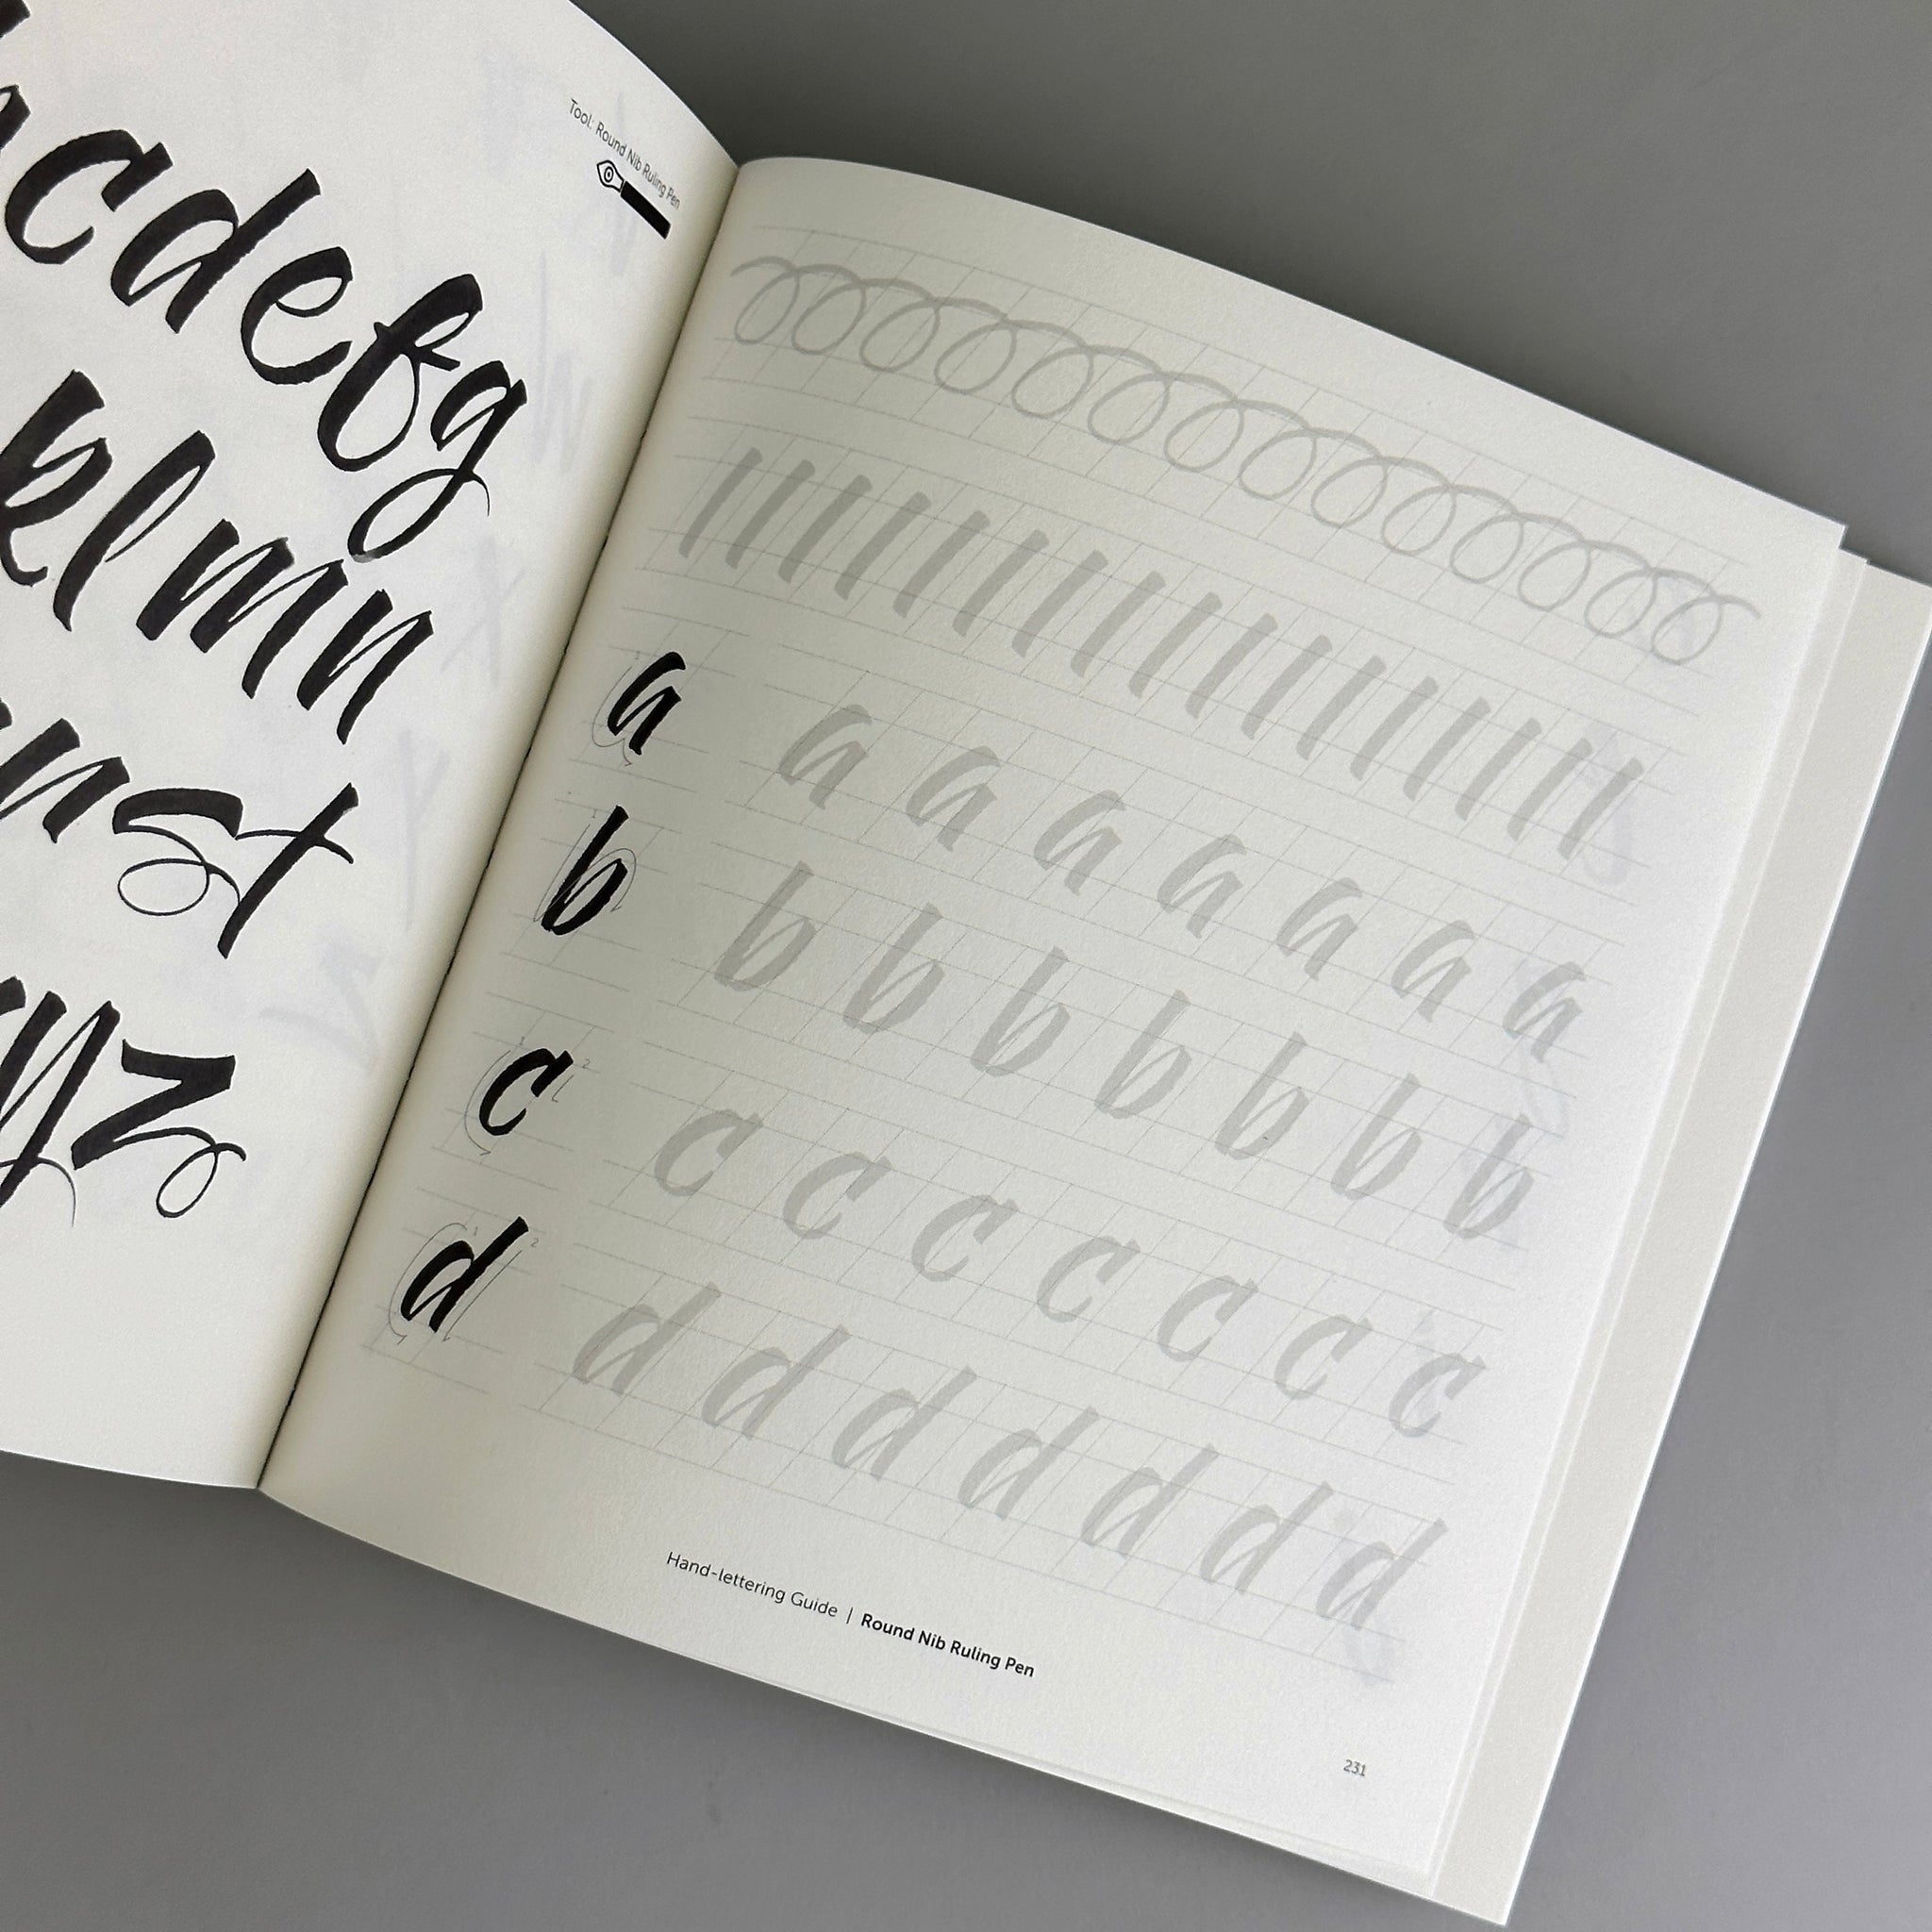 Tool: Round Nib Ruling Pen
cdefg
klmn
rst
yz
a a a a a a a a
b b b b b b b b
c c c c c c c c
d d d d d d d d
Hand-lettering Guide | Round Nib Ruling Pen
231